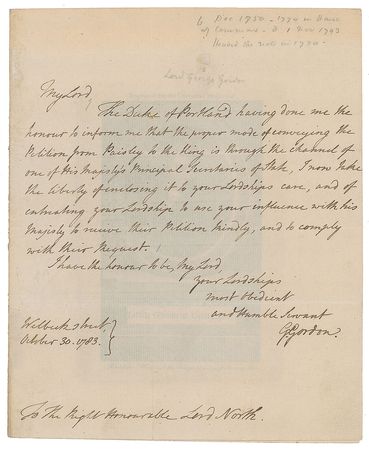 b. Dec 1750 - 1774 in House
of Commons - d. 1 Nov 1793
Headed the riots in 1780 -
Lord George Gordon
My Lord,
The Duke of Portland having done me the
honour to inform me that the proper mode of conveying the
Petition from Paisley to the King is through the channel of
one of His Majesty's Principal Secretaries of State, I now take
the liberty of enclosing it to your Lordships care, and of
entreating your Lordship to use your influence with his
Majesty to receive their Petition kindly, and to comply
with their Request.
I have the honour to be, My Lord
your Lordships
most obedient
and Humble Servant
G. Gordon.
Welbeck street
October 30. 1783.
To The Right Honourable Lord North.